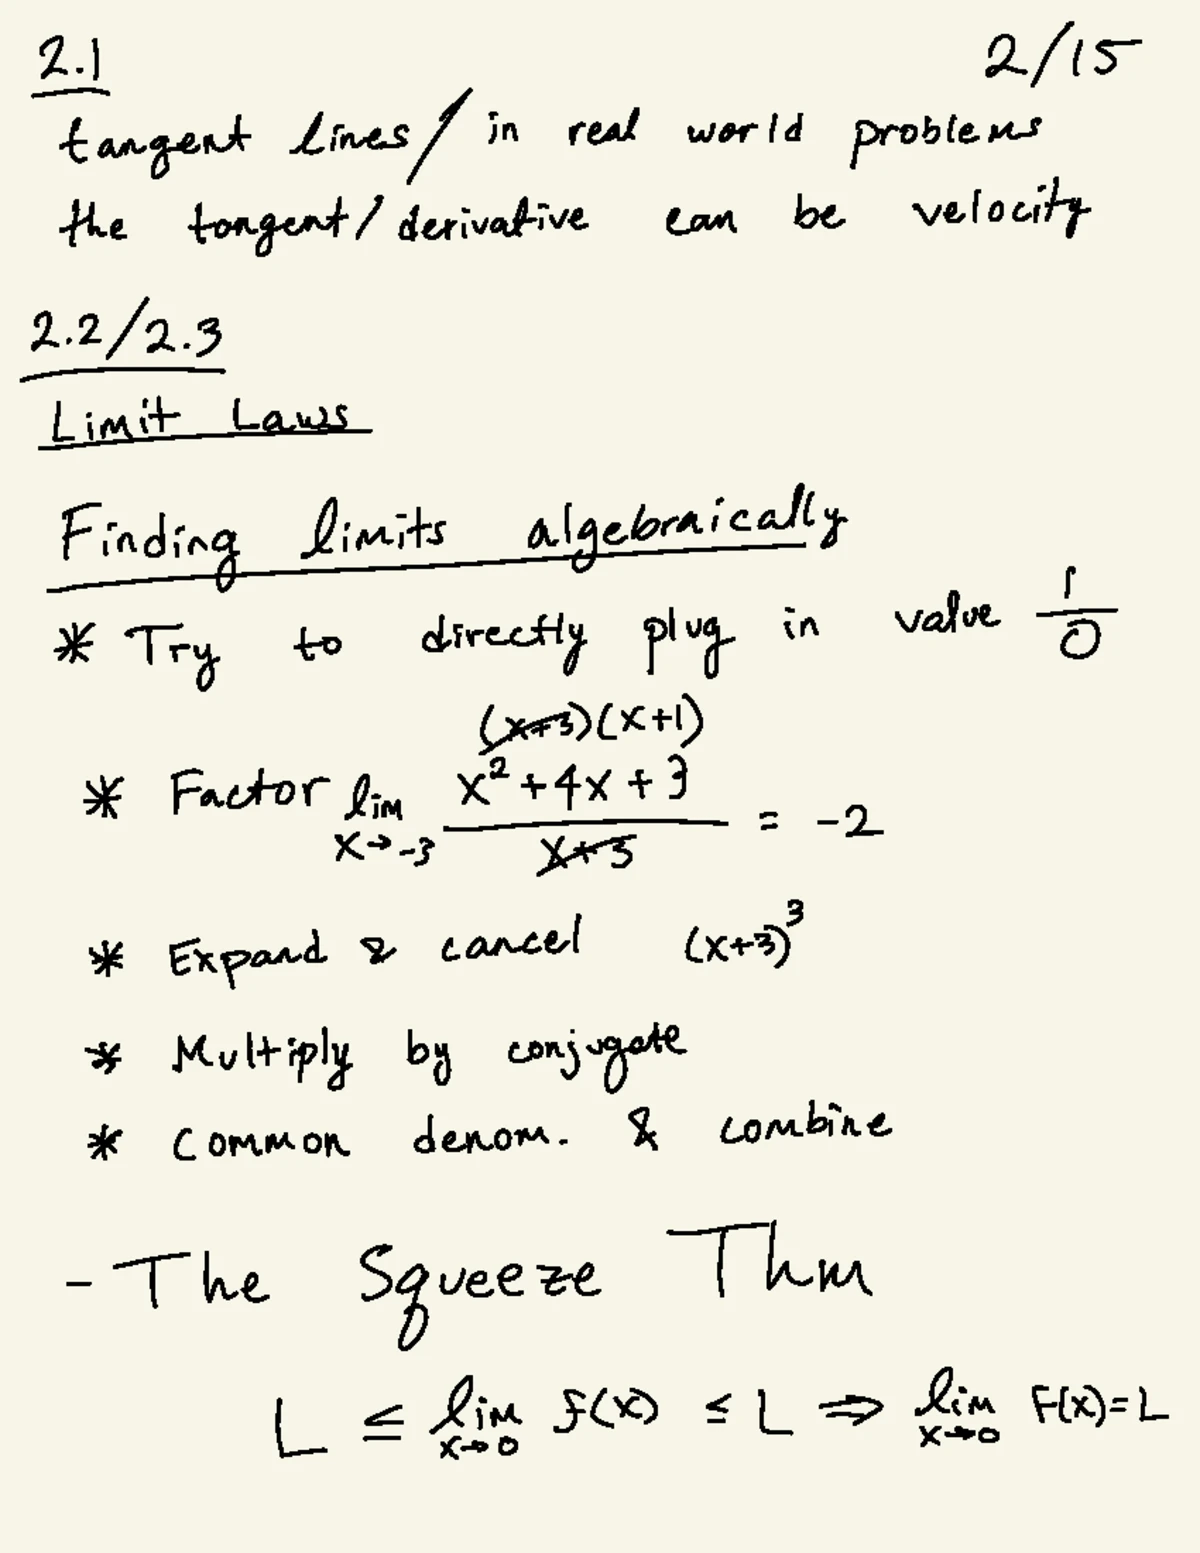 2.1 2/15
tangent lines / in real world problems
the tangent / derivative can be velocity
2.2/2.3
Limit Laws
Finding limits algebraically
* Try to directly plug in value 1/0
(x+3)(x+1)
* Factor lim x→-3 (x²+4x+3)/(x+3) = -2
* Expand & cancel (x+3)³
* Multiply by conjugate
* Common denom. & combine
- The Squeeze Thm
L ≤ lim x→0 f(x) ≤ L ⇒ lim x→0 F(x)=L